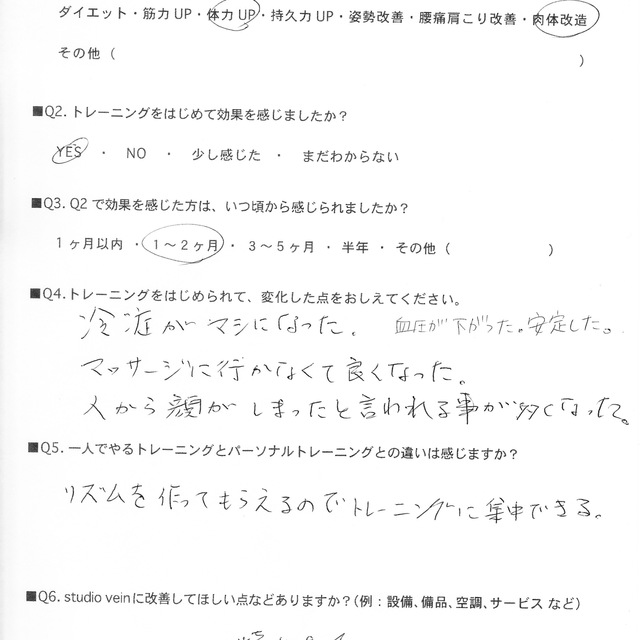 ダイエット・筋力 UP・体力 UP・持久力 UP・姿勢改善・腰痛肩こり改善・肉体改造
その他（　　　　　）
■Q2. トレーニングをはじめて効果を感じましたか？
YES ・ NO ・ 少し感じた ・ まだわからない
■Q3. Q2 で効果を感じた方は、いつ頃から感じられましたか？
1 ヶ月以内 ・ 1〜2 ヶ月 ・ 3〜5 ヶ月 ・ 半年 ・ その他（　　　　　）
■Q4.トレーニングをはじめられて、変化した点をおしえてください。
冷症がマシになった。 血圧が下がった。安定した。
マッサージに行かなくて良くなった。
人から顔がしまったと言われる事が多くなった。
■Q5. 一人でやるトレーニングとパーソナルトレーニングとの違いは感じますか？
リズムを作ってもらえるのでトレーニングに集中できる。
■Q6. studio veinに改善してほしい点などありますか？（例：設備、備品、空調、サービス など）